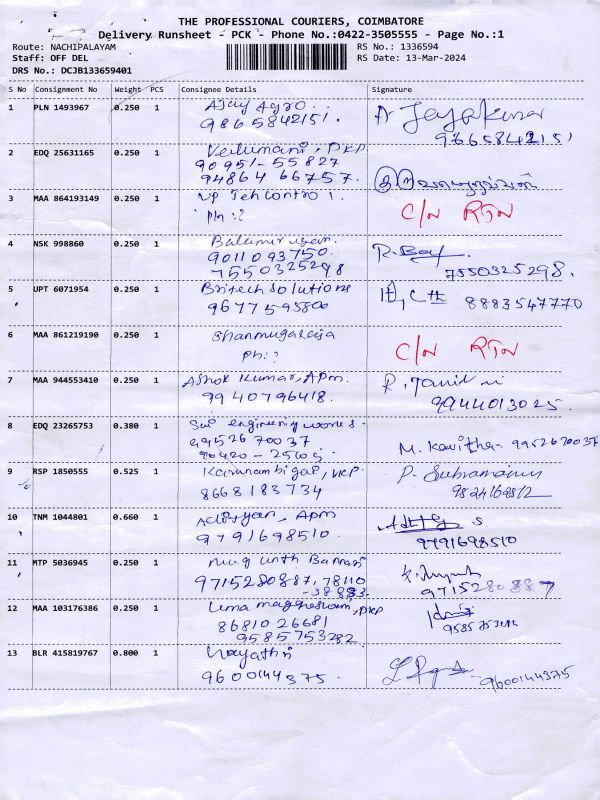 THE PROFESSIONAL COURIERS, COIMBATORE
Delivery Runsheet - PCK - Phone No.:0422-3505555 - Page No.:1
Route: NACHIPALAYAM RS No.: 1336594
Staff: OFF DEL RS Date: 13-Mar-2024
DRS No.: DCJB133659401
S No Consignment No Weight PCS Consignee Details Signature
1 PLN 1493967 0.250 1 Ajay Agro.. A Jayakumar
9865842151. 9865842151
2 EDQ 25631165 0.250 1 Velumani, PKP
90951-55827
94864 66757.
3 MAA 864193149 0.250 1 VP Tehcontrol. C/N RTN
Ph:?
4 NSK 998860 0.250 1 Balamurugan. R.
9011093750. 7550325298.
7550325298
5 UPT 6071954 0.250 1 Britech solutions 8883547770
9677595800
6 MAA 861219190 0.250 1 Shanmugaraja C/N RTN
Ph:?
7 MAA 944553410 0.250 1 Ashok Kumar, Apm. R.
9940796418. 9944013025.
8 EDQ 23265753 0.380 1 engineering works. M. Kavitha 9952670037
9952670037
9 RSP 1850555 0.525 1 Karunambigai, VKP P. Subramaniam
8668183734
10 TNM 1044801 0.660 1 Adhiyan, Apm S.
9791698510 9791698510
11 MTP 5036945 0.250 1
9715280887, 78110 9715280887
-38833.
12 MAA 103176386 0.250 1 Uma maggheswari, PKP
8681026681
9585753282
13 BLR 415819767 0.800 1 Gayathri
9600144375. 9600144375